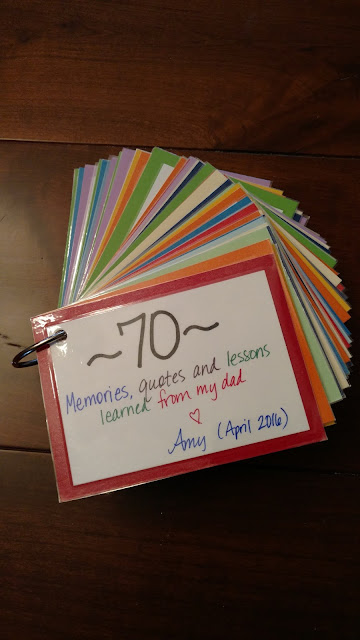 ~70~
Memories, quotes and lessons
learned from my dad
♡
Amy (April 2016)